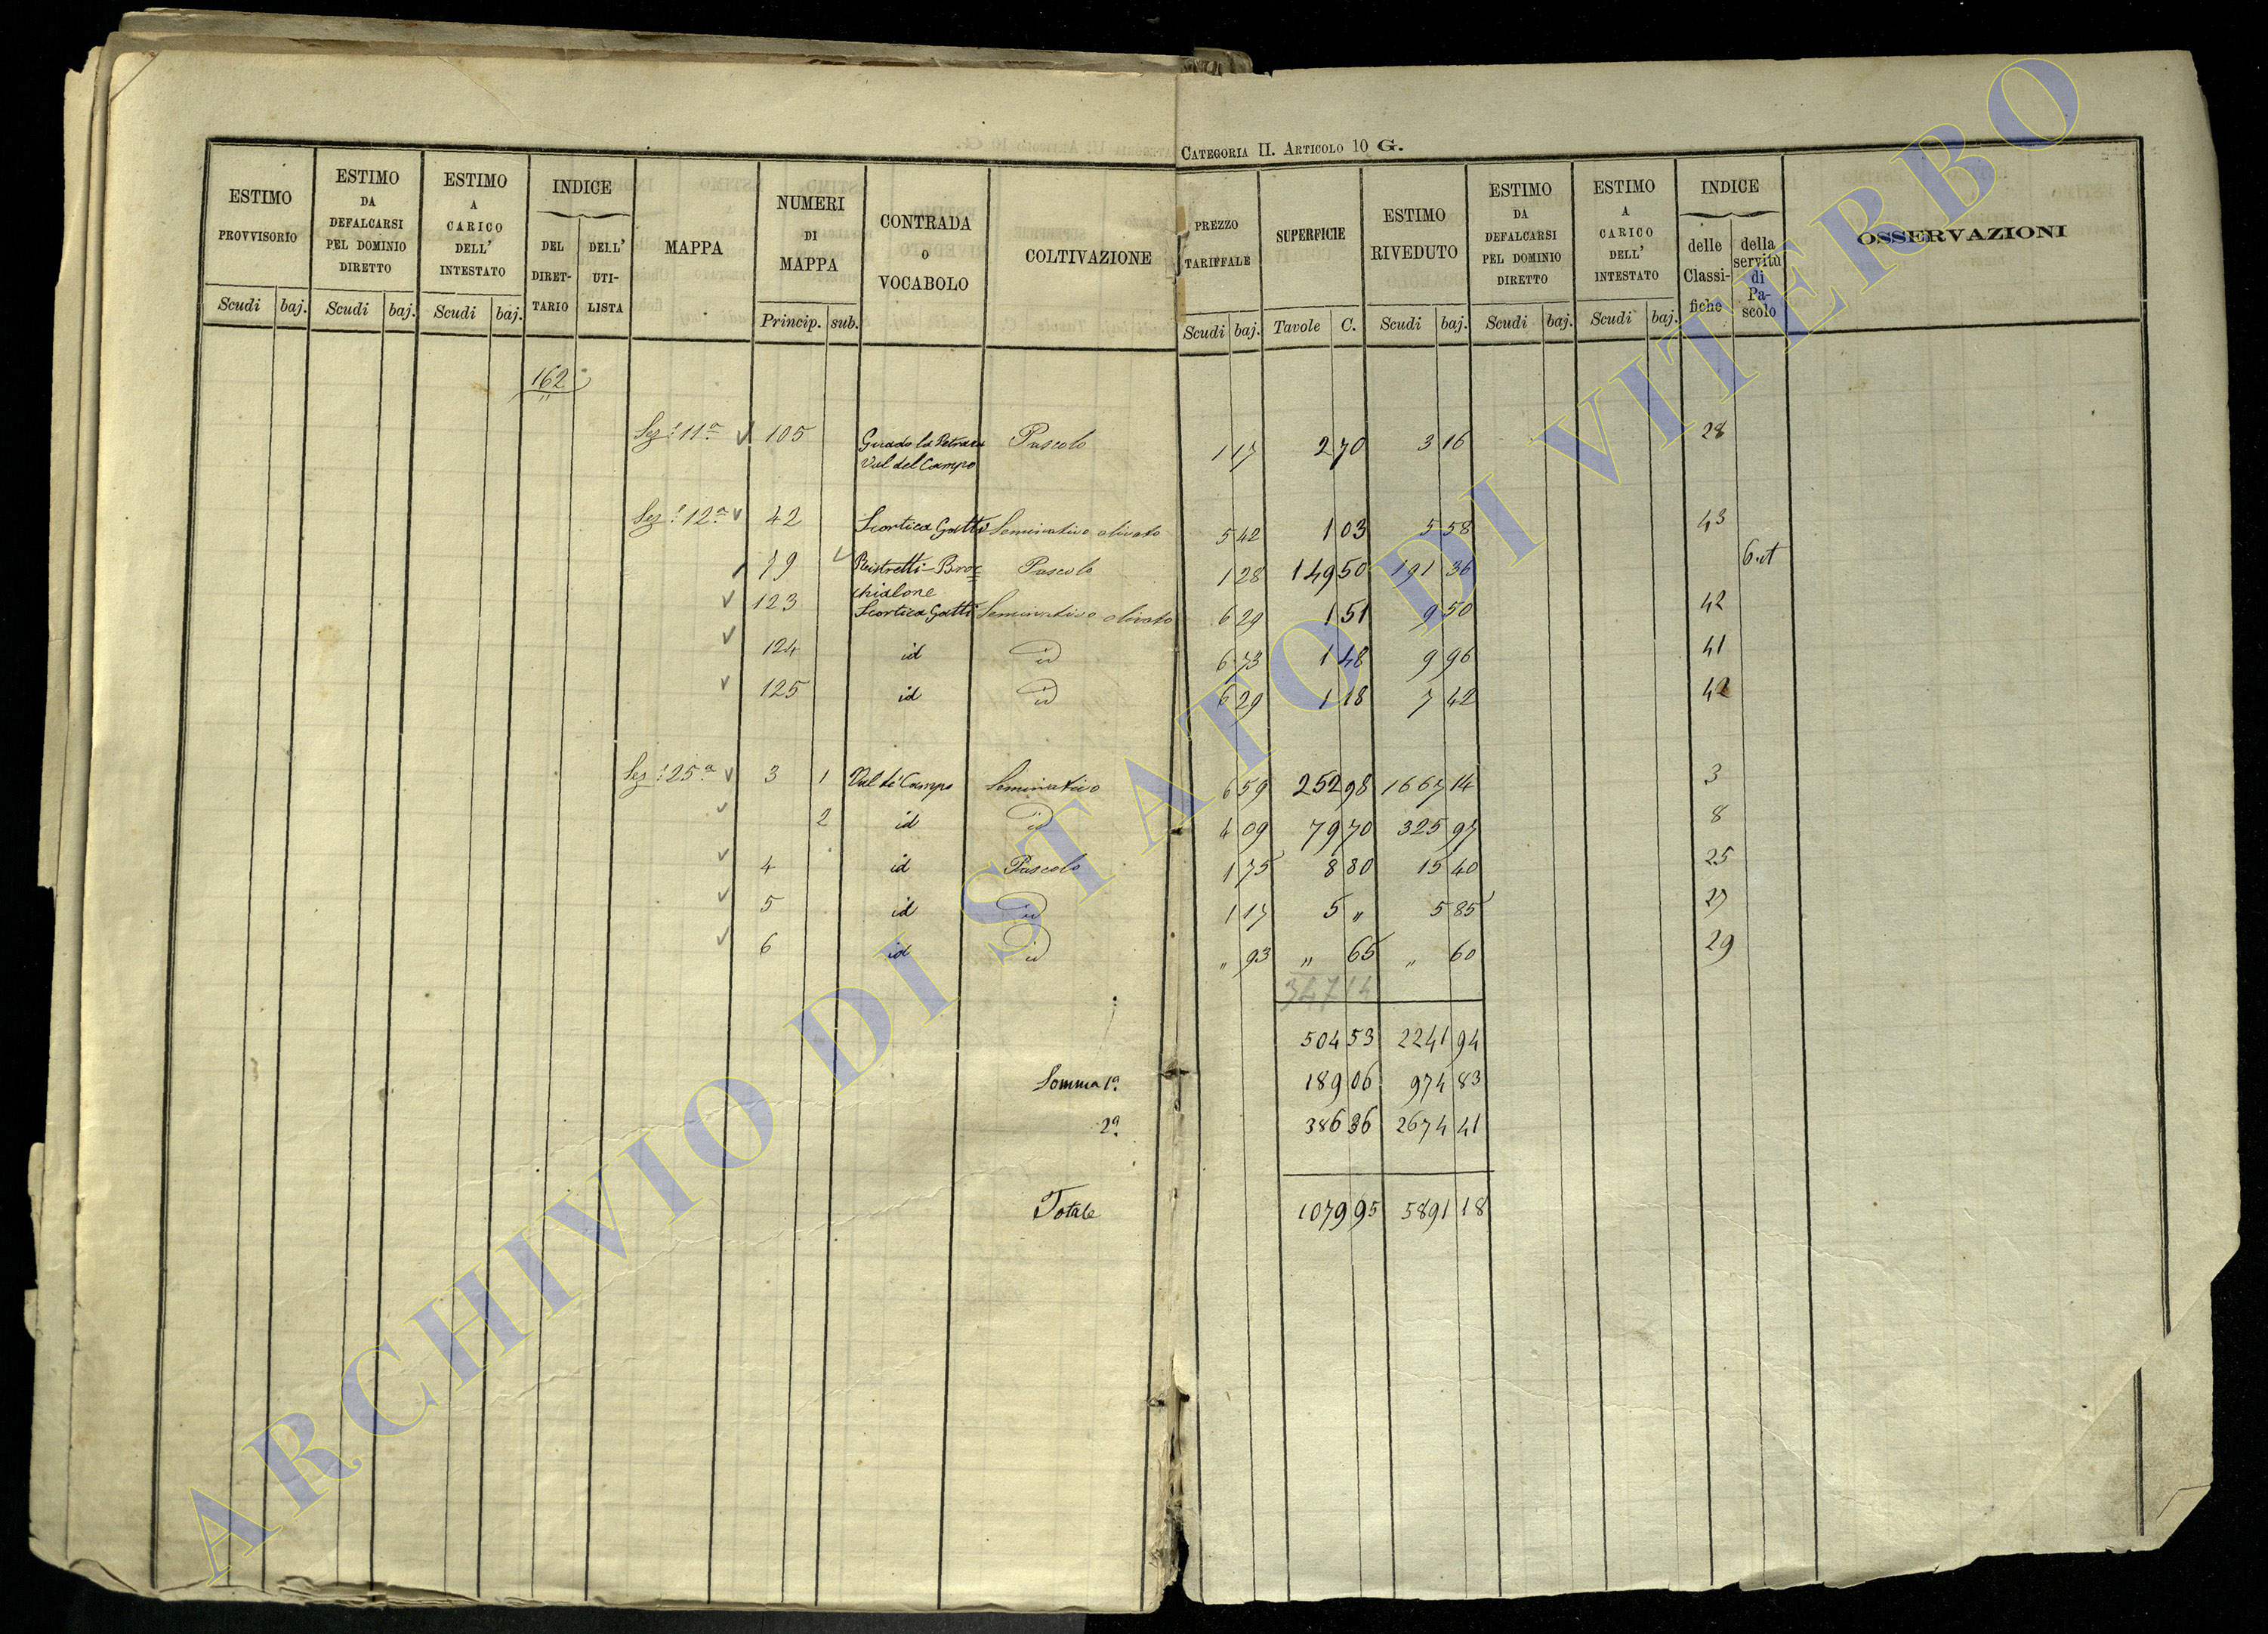 CATEGORIA II. ARTICOLO 10 G.
ESTIMO PROVVISORIO Scudi baj.
ESTIMO DA DEFALCARSI PEL DOMINIO DIRETTO Scudi baj.
ESTIMO A CARICO DELL' INTESTATO Scudi baj.
INDICE DEL DIRET- TARIO DELL' UTI- LISTA
MAPPA
NUMERI DI MAPPA Princip. sub.
CONTRADA O VOCABOLO
COLTIVAZIONE
PREZZO TARIFFALE Scudi baj.
SUPERFICIE Tavole C.
ESTIMO RIVEDUTO Scudi baj.
ESTIMO DA DEFALCARSI PEL DOMINIO DIRETTO Scudi baj.
ESTIMO A CARICO DELL' INTESTATO Scudi baj.
INDICE delle Classi- fiche della servitù di Pa- scolo
OSSERVAZIONI
162
Sez.e 11a 105 Pascolo 1 17 2 70 3 16 28
Val del Campo
Sez.e 12a 42 Scortica Gatti Seminativo olivato 5 42 1 03 5 58 43
79 Pascolo 1 28 149 50 191 36
chialone
123 Scortica Gatti Seminativo olivato 6 29 1 51 9 50 42
124 id id 6 73 1 48 9 96 41
125 id id 6 29 1 18 7 42 42
Sez.e 25a 3 1 Val di Campo Seminativo 6 59 252 98 1667 14 3
2 id id 4 09 79 70 325 97 8
4 id Pascolo 1 75 8 80 15 40 25
5 id id 1 17 5 " 5 85 27
6 id id " 93 " 65 " 60 29
347 14
504 53 2241 94
Somma 1a 189 06 974 83
2a 386 36 2674 41
Totale 1079 95 5891 18
ARCHIVIO DI STATO DI VITERBO